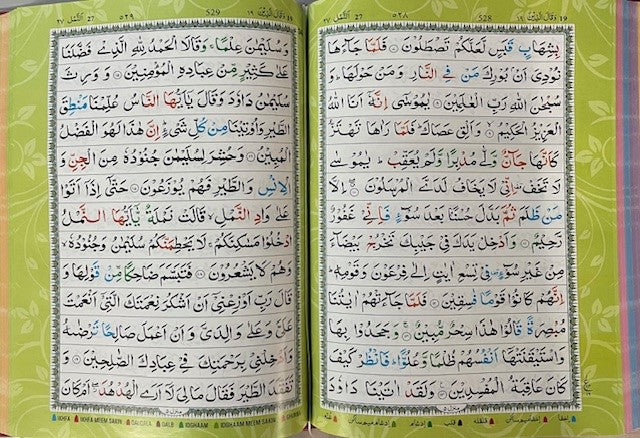 وَقَالَ الَّذِيْنَ ١٩ 528 ۵۲۸ اَلنَّمْل ٢٧
بِشِهَابٍ قَبَسٍ لَّعَلَّكُمْ تَصْطَلُوْنَ ۝ فَلَمَّا جَآءَهَا
نُوْدِيَ اَنْۢ بُوْرِكَ مَنْ فِي النَّارِ وَمَنْ حَوْلَهَا ؕ وَ
سُبْحٰنَ اللّٰهِ رَبِّ الْعٰلَمِيْنَ ۝ يٰمُوْسٰٓى اِنَّهٗٓ اَنَا اللّٰهُ
الْعَزِيْزُ الْحَكِيْمُ ۝ وَاَلْقِ عَصَاكَ ؕ فَلَمَّا رَاٰهَا تَهْتَزُّ
كَاَنَّهَا جَآنٌّ وَّلّٰى مُدْبِرًا وَّلَمْ يُعَقِّبْ ؕ يٰمُوْسٰى
لَا تَخَفْ اِنِّيْ لَا يَخَافُ لَدَيَّ الْمُرْسَلُوْنَ ۝ اِلَّا
مَنْ ظَلَمَ ثُمَّ بَدَّلَ حُسْنًۢا بَعْدَ سُوْٓءٍ فَاِنِّيْ غَفُوْرٌ
رَّحِيْمٌ ۝ وَاَدْخِلْ يَدَكَ فِيْ جَيْبِكَ تَخْرُجْ بَيْضَآءَ
مِنْ غَيْرِ سُوْٓءٍ فِيْ تِسْعِ اٰيٰتٍ اِلٰى فِرْعَوْنَ وَقَوْمِهٖ ؕ
اِنَّهُمْ كَانُوْا قَوْمًا فٰسِقِيْنَ ۝ فَلَمَّا جَآءَتْهُمْ اٰيٰتُنَا
مُبْصِرَةً قَالُوْا هٰذَا سِحْرٌ مُّبِيْنٌ ۝ وَجَحَدُوْا بِهَا
وَاسْتَيْقَنَتْهَآ اَنْفُسُهُمْ ظُلْمًا وَّعُلُوًّا ؕ فَانْظُرْ كَيْفَ
كَانَ عَاقِبَةُ الْمُفْسِدِيْنَ ۝ وَلَقَدْ اٰتَيْنَا دَاوٗدَ
وَقَالَ الَّذِيْنَ ١٩ 529 ۵۲۹ اَلنَّمْل ٢٧
وَسُلَيْمٰنَ عِلْمًا ۚ وَقَالَا الْحَمْدُ لِلّٰهِ الَّذِيْ فَضَّلَنَا
عَلٰى كَثِيْرٍ مِّنْ عِبَادِهِ الْمُؤْمِنِيْنَ ۝ وَوَرِثَ
سُلَيْمٰنُ دَاوٗدَ وَقَالَ يٰٓاَيُّهَا النَّاسُ عُلِّمْنَا مَنْطِقَ
الطَّيْرِ وَاُوْتِيْنَا مِنْ كُلِّ شَيْءٍ ؕ اِنَّ هٰذَا لَهُوَ الْفَضْلُ
الْمُبِيْنُ ۝ وَحُشِرَ لِسُلَيْمٰنَ جُنُوْدُهٗ مِنَ الْجِنِّ وَ
الْاِنْسِ وَالطَّيْرِ فَهُمْ يُوْزَعُوْنَ ۝ حَتّٰٓى اِذَآ اَتَوْا
عَلٰى وَادِ النَّمْلِ ۙ قَالَتْ نَمْلَةٌ يّٰٓاَيُّهَا النَّمْلُ
ادْخُلُوْا مَسٰكِنَكُمْ ۚ لَا يَحْطِمَنَّكُمْ سُلَيْمٰنُ وَجُنُوْدُهٗ ۙ
وَهُمْ لَا يَشْعُرُوْنَ ۝ فَتَبَسَّمَ ضَاحِكًا مِّنْ قَوْلِهَا وَ
قَالَ رَبِّ اَوْزِعْنِيْٓ اَنْ اَشْكُرَ نِعْمَتَكَ الَّتِيْٓ اَنْعَمْتَ
عَلَيَّ وَعَلٰى وَالِدَيَّ وَاَنْ اَعْمَلَ صَالِحًا تَرْضٰىهُ
وَاَدْخِلْنِيْ بِرَحْمَتِكَ فِيْ عِبَادِكَ الصّٰلِحِيْنَ ۝ وَ
تَفَقَّدَ الطَّيْرَ فَقَالَ مَا لِيَ لَآ اَرَى الْهُدْهُدَ ۖ اَمْ كَانَ
IKHFA IKHFA MEEM SAKIN QALQALA QALB IDGHAAM IDGHAAM MEEM SAKIN GHUNNA